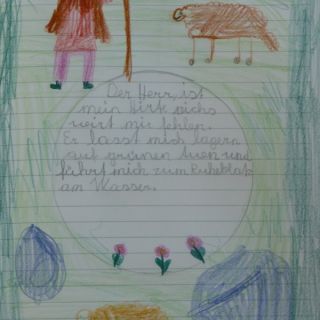 Der Herr, ist
mein Hirt nichs
wirt mir fehlen.
Er lasst mich lagern
auf grünen Auen und
führt mich zum Ruheblatz
am Wasser.